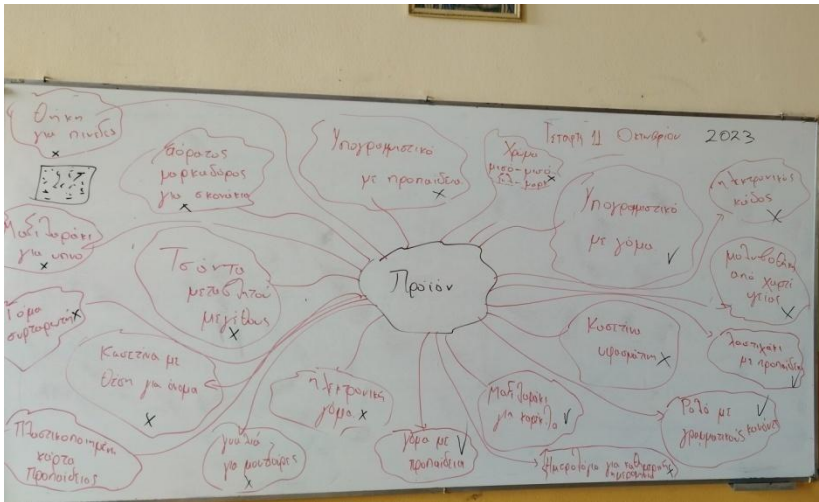 Τετάρτη 11 Οκτωβρίου 2023
Θήκη
για πινέλα
Αόρατος
μαρκαδόρος
για σκονάκια
Υπογραμμιστικό
με προπαίδεια
Χρώμα
μισο-μισό
Υπογραμμιστικό
με γόμα
ηλεκτρονικός
κάδος
Μαξιλαράκι
για υπνο
Τσάντα
μεταβλητού
μεγέθους
Προϊόν
μολυβοθήκη
από χαρτί
υγείας
Γόμα
συρταρωτή
Κασετίνα
υφασμάτινη
λαστιχάκι
με προπαίδεια
Κασετίνα με
θέση για άρωμα
ηλεκτρονική
γόμα
Μαξιλαράκι
για καρέκλα
Ρολό με
γραμματικούς κανόνες
Πλαστικοποιημένη
κάρτα
προπαίδειας
γυαλιά
για
γόμα με
προπαίδεια
Ημερολόγιο για